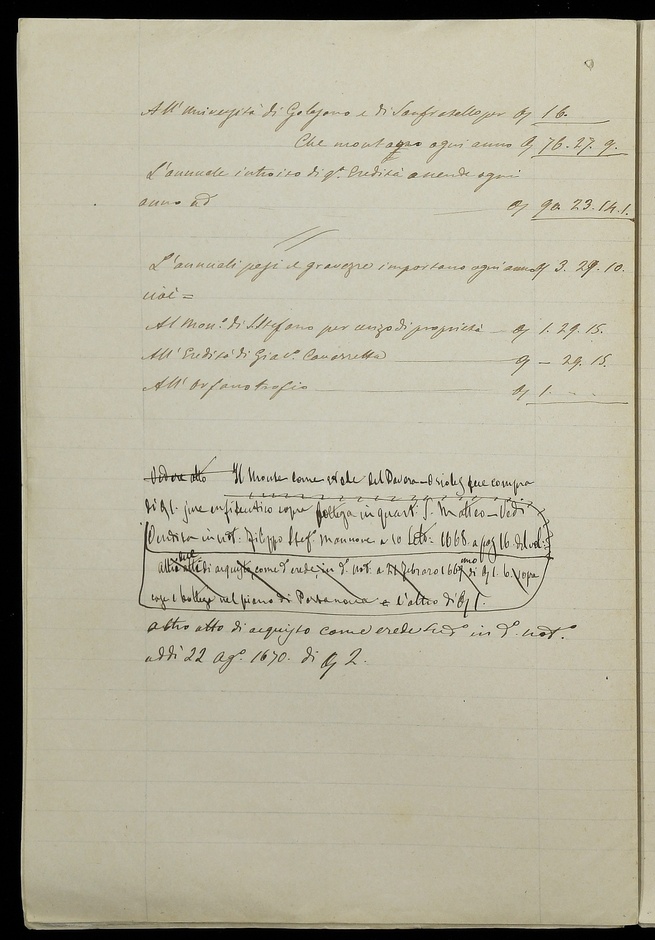 All'Università di Golesano e di Sanfratello per oz 16.
Che montano ogni anno oz 76. 27. 9.
L'annuale introito di q.ª Eredità ascende ogni
anno ad oz 90. 23. 14. 1.
L'annuali pesi e gravezze importano ogni anno oz 3. 29. 10.
cioè =
Al Mon.º di S. Stefano per mezo di proprietà — oz 1. 29. 15.
All'Eredità di Giac.º oz — 29. 15.
All'Orfanotrofio oz 1.
Vedere atto Il Monte come erede del compra
di oz 1. jure enfiteutico sopra bottega in quart: S. Matteo — Vedi
Vendita in not. Filippo Stef.º Mannone a 10 1668. a fog 16. del vol:
altro atto di acquisto come d.º erede, in d.º not. a 21 Febraro 1669 di oz 1. 6. sopra
case e botteghe nel piano di = L'altro di oz 1.
altro atto di acquisto come erede Sud.º in d.º not.º
addì 22 Ag.º 1670. di oz 2.